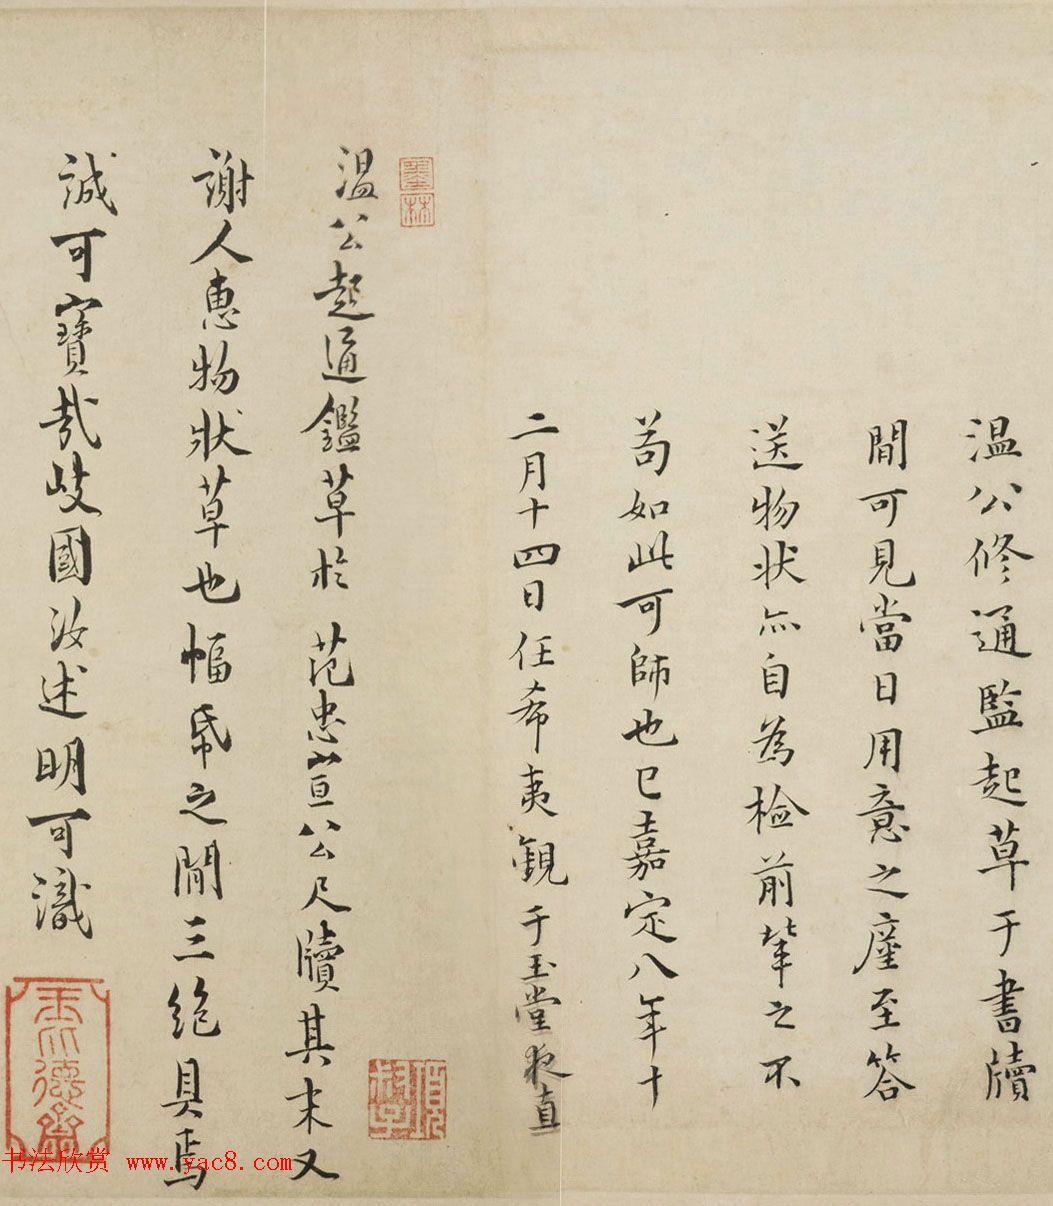 温公修通监起草于書牘
閒可見當日用意之廑至答
送物状亦自為检前輩之不
苟如此可師也已嘉定八年十
二月十四日任希夷觀于玉堂夜直
墨林
温公起通鑑草於范忠宣公尺牘其末又
謝人惠物状草也幅帋之間三絶具焉
誠可寶哉岐國汝述明可識
书法欣赏 www.yac8.com